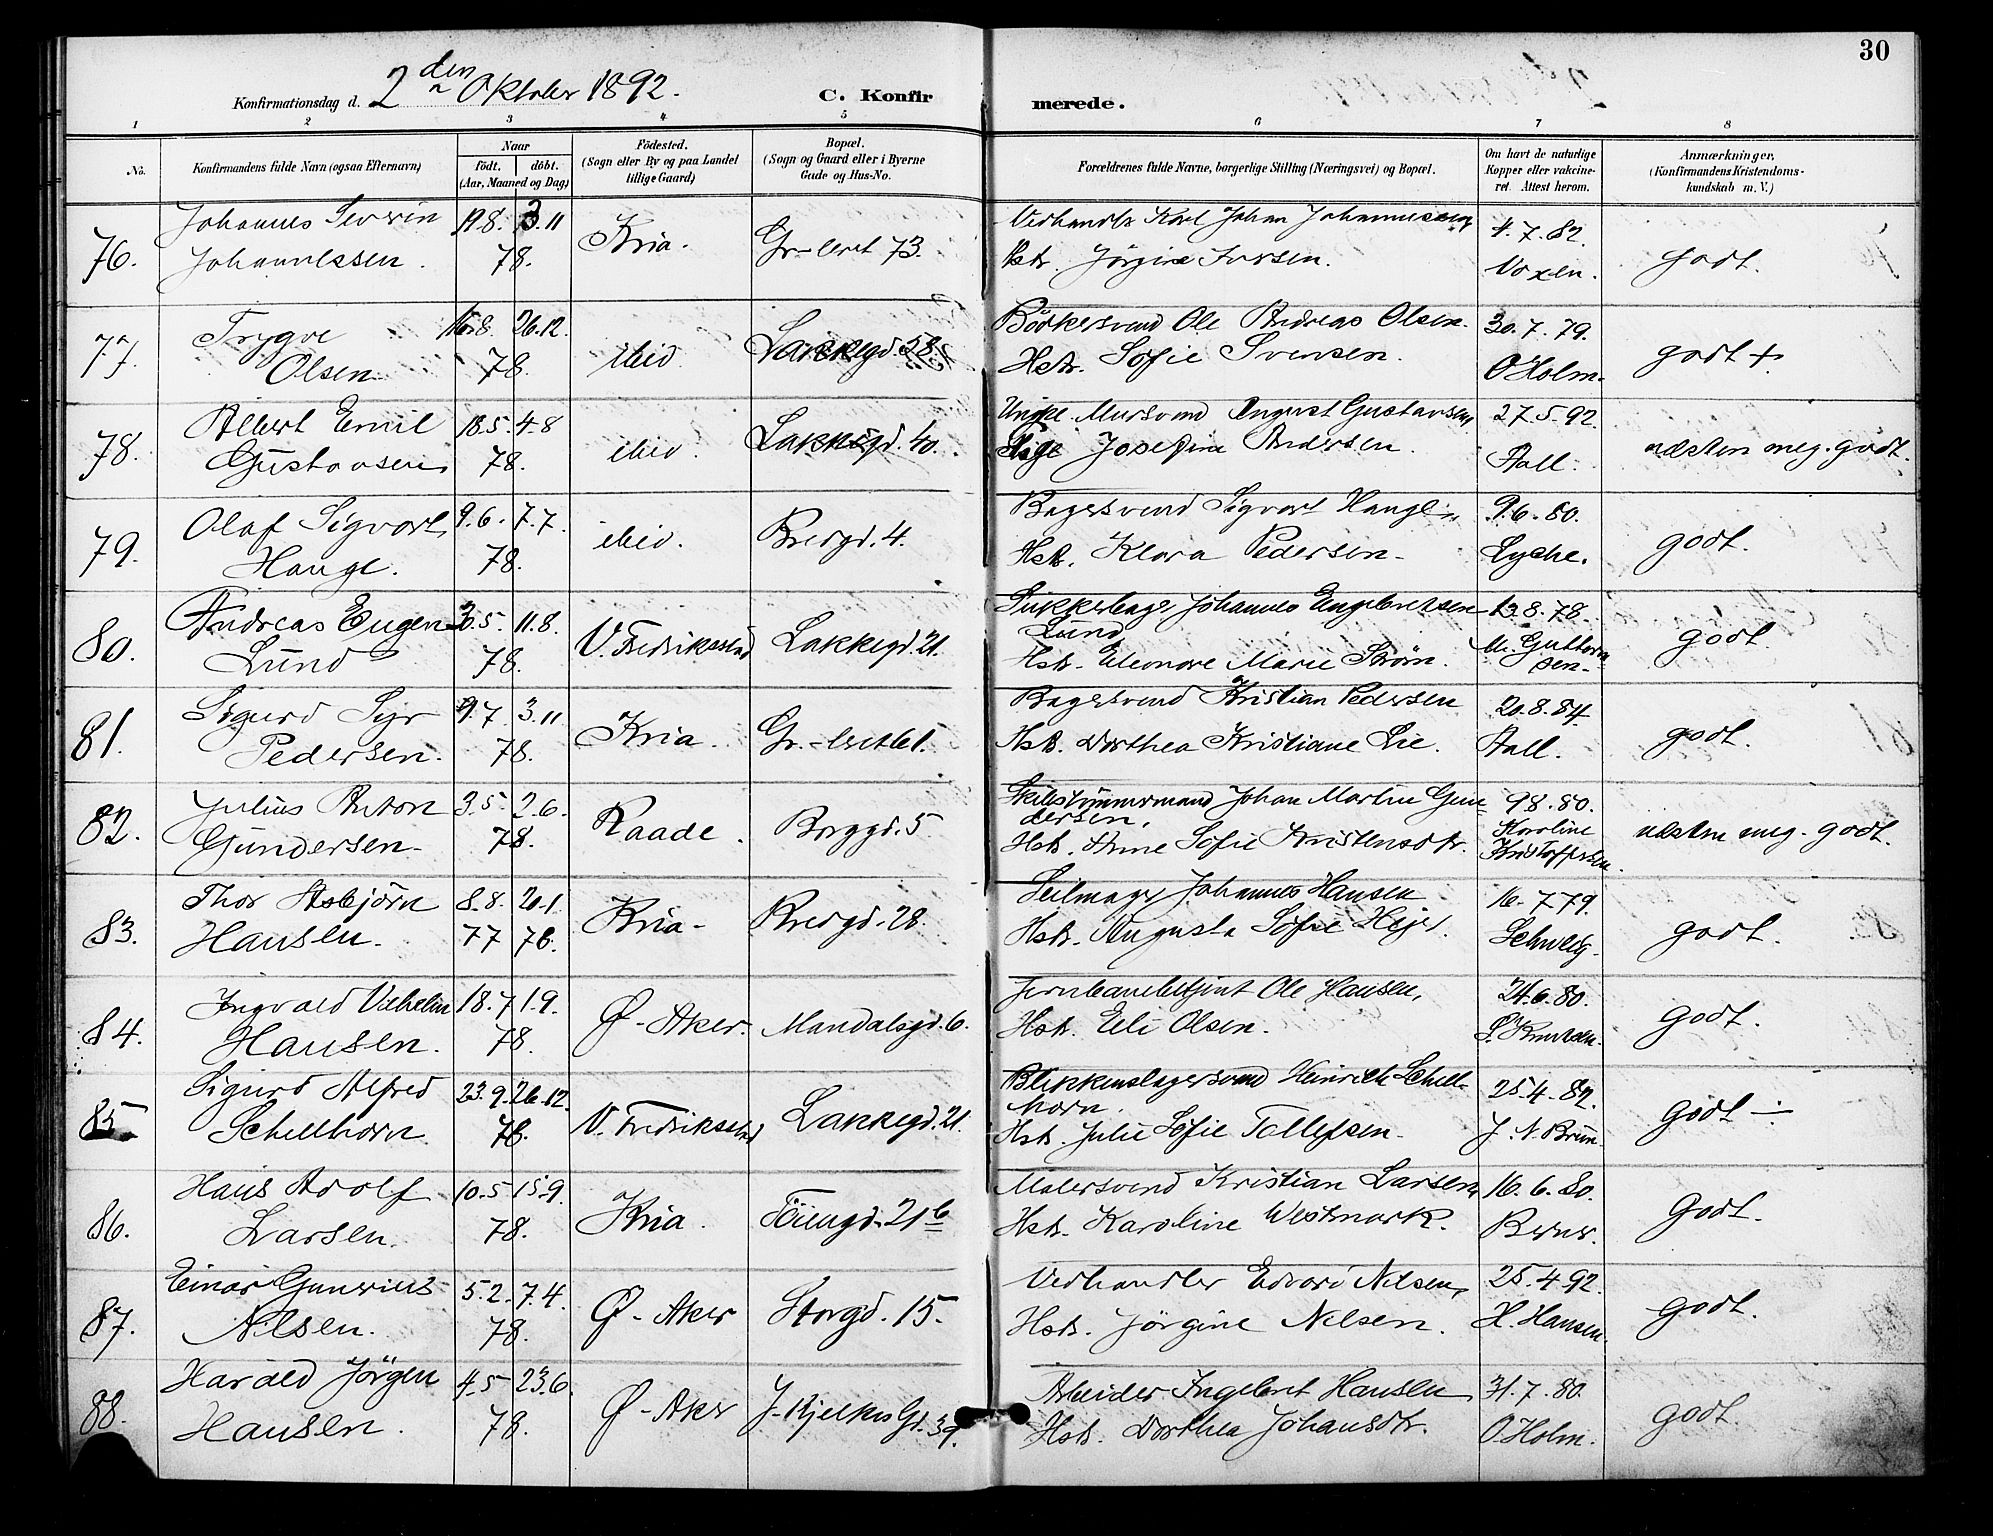 30
Konfirmationsdag d. 2den Oktober 1892. C. Konfirmerede.
1 2 3 4 5 6 7 8
No. Konfirmandens fulde Navn (ogsaa Efternavn) Naar født. døbt. (Aar, Maaned og Dag) Fødested. (Sogn eller By og paa Landet tillige Gaard) Bopæl. (Sogn og Gaard eller i Byerne Gade og Hus-No. Forældrenes fulde Navne, borgerlige Stilling (Næringsvei) og Bopæl. Om havt de naturlige Kopper eller vakcineret. Attest herom. Anmærkninger, (Konfirmandens Kristendomskundskab m. V.)
76. Johannes Severin 19.8. 3.11 Kria. Gr-leret 73. Vedhandler Karl Johan Johannessen, 4.7.82. godt.
Johannessen. 78. Hstr. Jørgine Iversen. Voxen.
77. Trygve 16.8 26.12. ibid Lakkegd. 58. Bødkersvend Ole Andreas Olsen. 30.7.79. godt +
Olsen 78. Hstr. Sofie Svensen. O Holm.
78. Albert Emil 18.5. 4.8 ibid. Lakkegd. 40. Ungkl. Mursvend August Gustavsen, 27.5.92. næsten meg. godt.
Gustavsen 78. Pige Josefine Andersen. Aall.
79. Olaf Sigvart 9.6. 7.7. ibid. Bredgd. 4. Bagersvend Sigvart Hauge, 9.6.80. godt.
Hauge. 78. Hstr. Klara Pedersen- Lyche.
80. Andreas Eugen 30.5. 11.8. V. Fredriksstad Lakkegd. 21. Sukkerbager Johannes Engebretsen 13.8.78. godt.
Lund 78. Lund,
Hstr. Eleonore Marie Strøm. M. Guttormsen.
81. Sigurd Syr 9.7 3.11 Kria. Gr.-leret 61. Bagersvend Kristian Pedersen 20.8.84 godt.
Pedersen. 78. Hstr. Dorthea Kristiane Lie. Aall.
82. Julius Anton 3.5. 2.6. Raade. Borggd. 5 Skibstømmermand Johan Martin Gundersen, 9.8.80. næsten meg. godt.
Gundersen- 78. Hstr. Anne Sofie Kristensdtr. Karoline Kristoffersen.
83. Thor Asbjörn 8.8. 20.1. Kria- Bredgd. 28. Seilmager Johannes Hansen 16.7 79. godt.
Hansen. 77 78. Hstr. Augusta Sofie Hejer. Schweig-
84. Ingvald Vilhelm 18.7 1.9. Ø-Aker. Mandalsgd. 6. Jernbanebetjent Ole Hansen, 24.6.80. godt.
Hansen. 78. Hstr. Eli Olsen. S. Knutsen.
85 Sigurd Alfred 23.9. 26.12. V. Fredriksstad Lakkegd. 21. Blikkenslagersvend Heinrich Schellhorn. 25.4.82. godt ÷
Schellhorn. 78. Hstr. Julie Sofie Tollefsen- J. N. Brun.
86. Hans Adolf 10.5 15.9. Kria. Töiengd. 21b Malersvend Kristian Larsen, 16.6.80. godt.
Larsen. 78. Hstr. Karoline Westmark. Berner.
87. Einar Gunerius 5.2. 7.4. Ø-Aker Storgd. 15. Vedhandler Edvard Nilsen, 25.4 92. godt.
Nilsen. 78. Hstr. Jörgine Nilsen. H. Hansen.
88. Harald Jörgen 4.5 23.6. Ø-Aker J. Kjelkes Gd. 39. Arbeider Ingebret Hansen 31.7.80. godt.
Hansen. 78. Hstr. Dorthea Johansdtr. O. Holm.